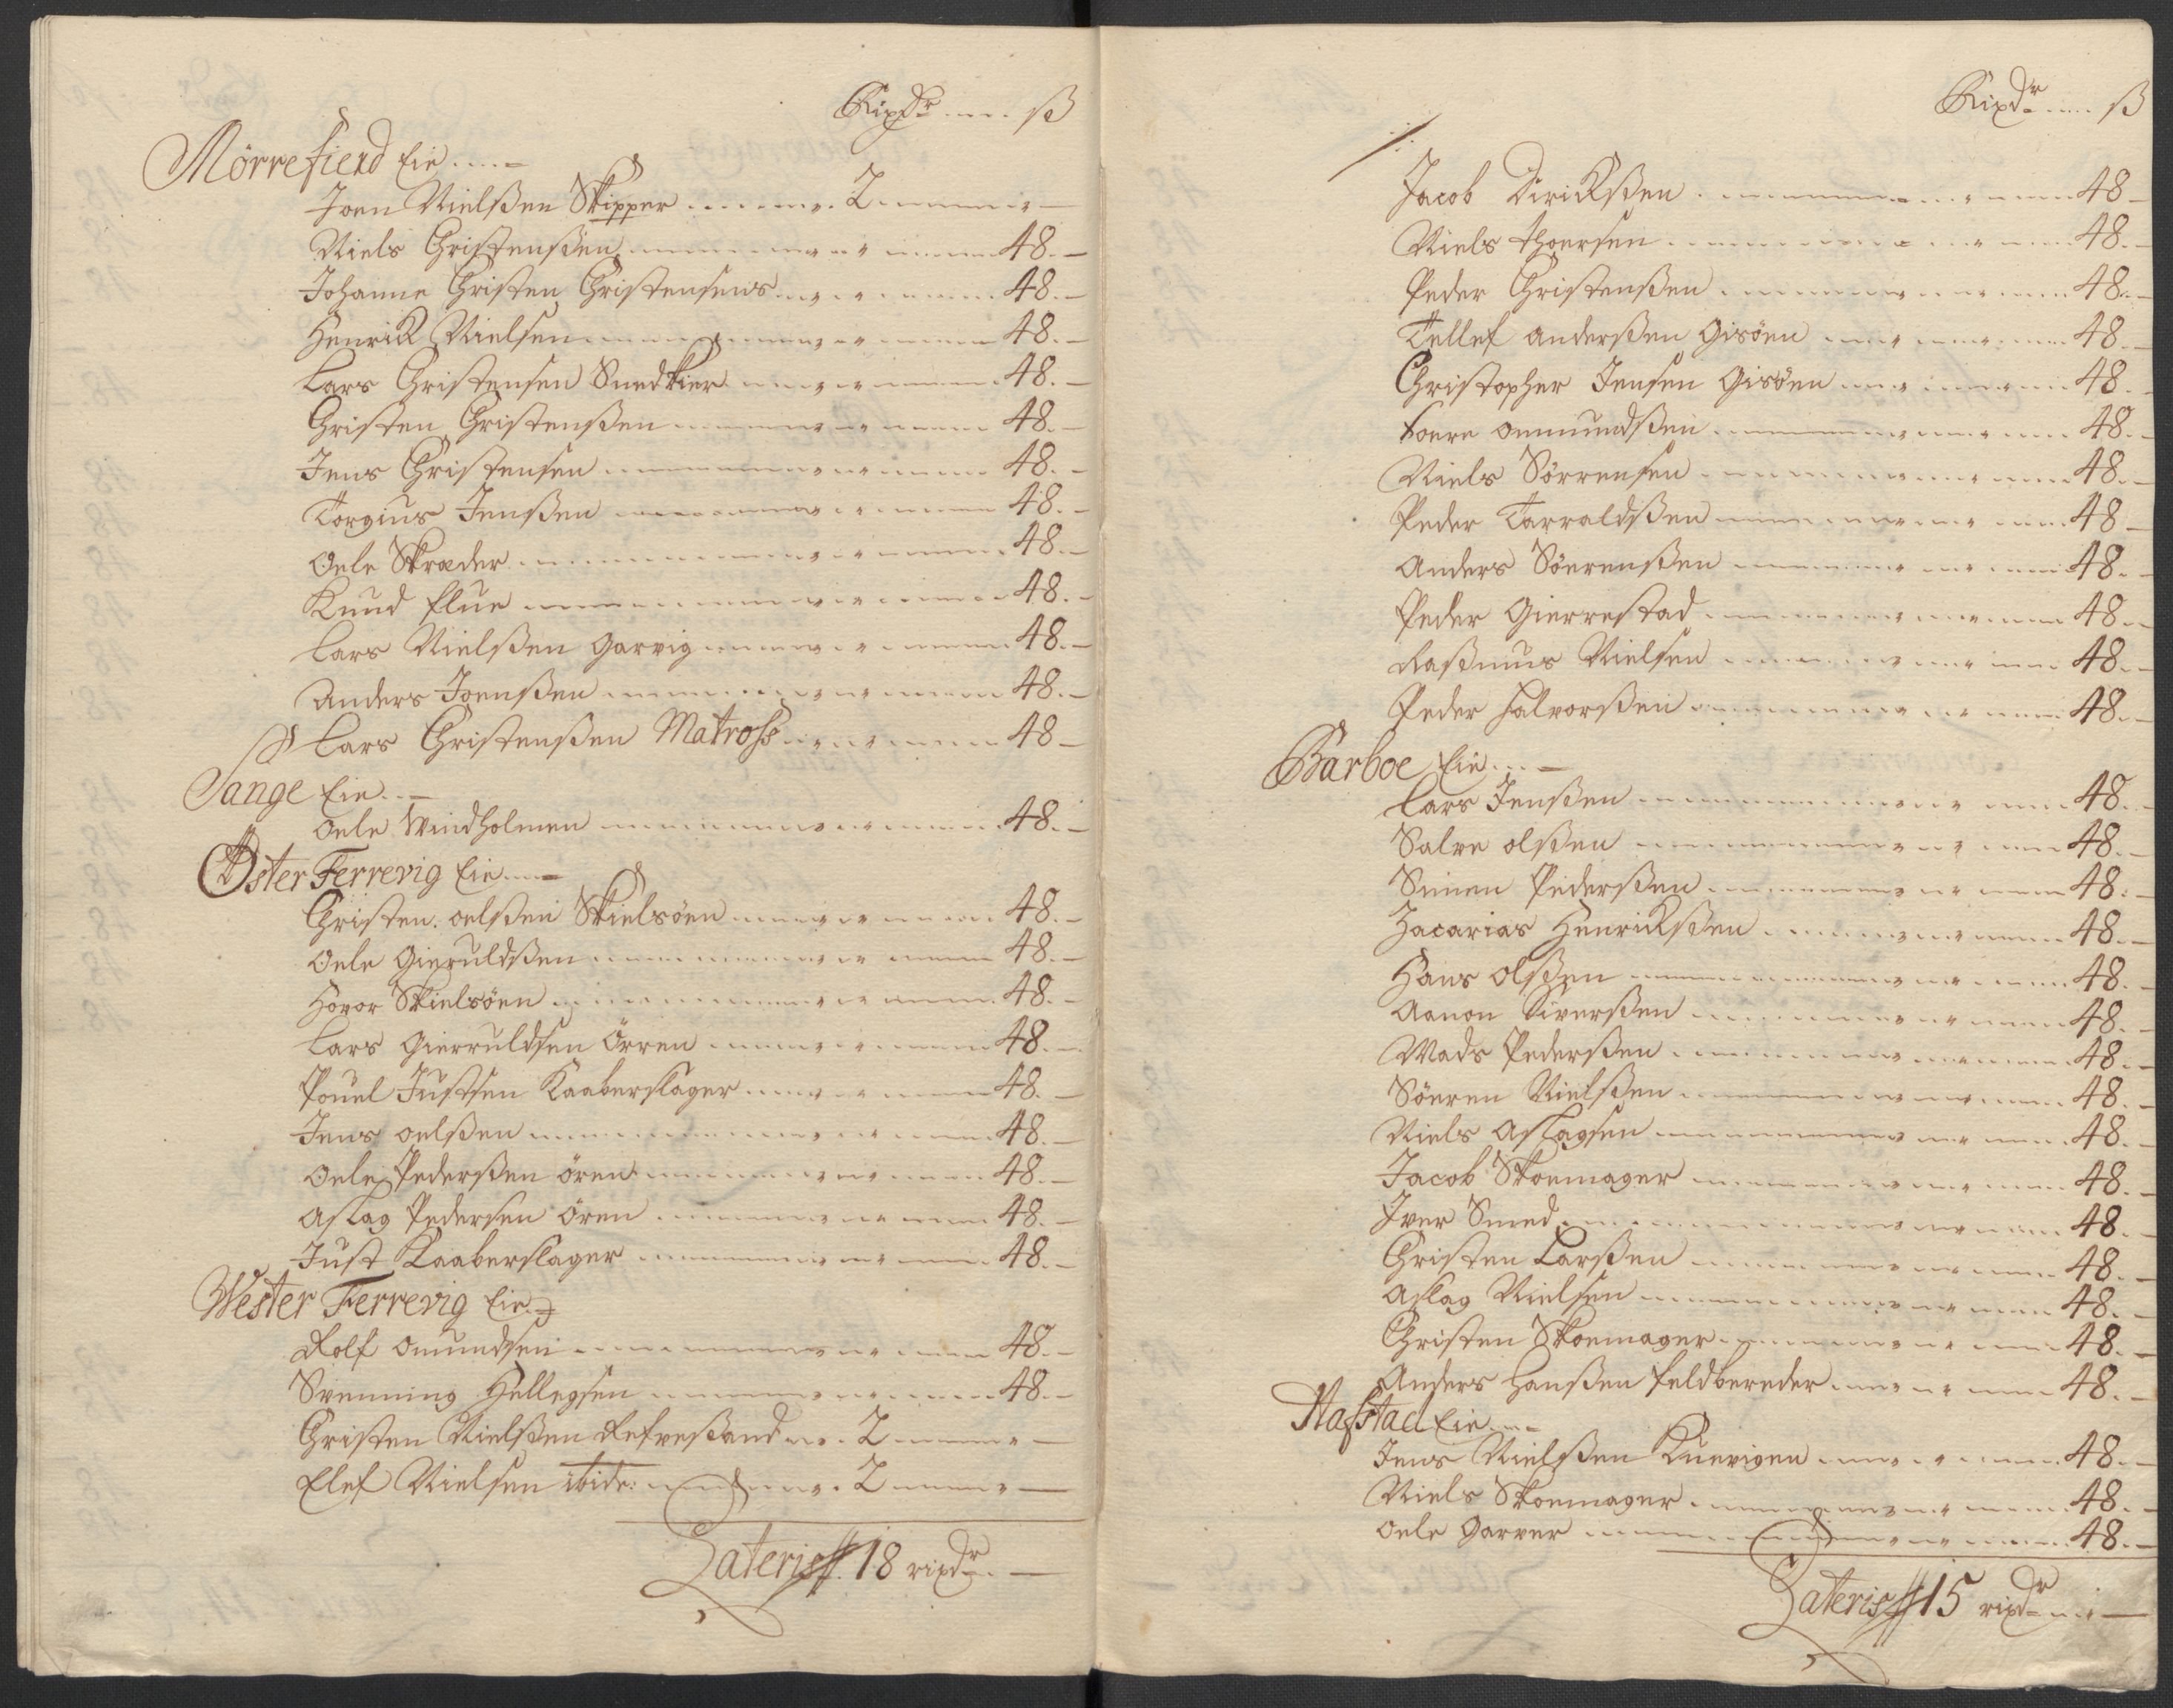 Rixdr ß
Mörrefierd Eie
Joen Nielßen Skipper 2
Niels Christenßen 48
Johanne Christen Christensens 48
Henrik Nielsen 48
Lars Christensen Snedkier 48
Christen Christenßen 48
Jens Christensen 48
Torgius Jenßen 48
Oele Skræder 48
Knud flue 48
Lars Nielßen Garvig 48
Anders Joenßen 48
Lars Christenßen Matroß 48
Sange Eie
Oele Windholmen 48
Öster Ferrevig Eie
Christen oelßen Skielsöen 48
Oele Gieruldßen 48
Hovor Skielsöen 48
Lars Gierruldsen Örren 48
Pouel Justsen Kaaberslager 48
Jens oelßen 48
Oele Pederßen ören 48
Aslag Pedersen Ören 48
Just Kaaberslager 48
Wester Ferrevig Eie
Rolf Omundsen 48
Svenning Hellegsen 48
Christen Nielßen Refveßand 2
Elef Nielsen ibid: 2
Lateris 18 rixdr
Rixdr ß
Jacob Dirickßen 48
Niels Thoersen 48
Peder Christenßen 48
Tellef Anderßen Gisöen 48
Christopher Jensen Gisöen 48
Toere Onmundßen 48
Niels Sörrensen 48
Peder Tarraldßen 48
Anders Söerenßen 48
Peder Gierrestad 48
Raßmus Nielsen 48
Peder Halvorßen 48
Barboe Eie
Lars Jenßen 48
Salve olßen 48
Simen Pederßen 48
Zacarias Henrickßen 48
Hans Olßen 48
Aanon Siverßen 48
Mads Pederßen 48
Söeren Nielßen 48
Niels Aslagsen 48
Jacob Skoemager 48
Iver Smed 48
Christen Larßen 48
Aslag Nielsen 48
Christen Skoemager 48
Anders Hanßen feldbereder 48
Hafstad Eie
Jens Nielßen Knevigen 48
Niels Skoemager 48
Oele Garver 48
Lateris 15 rixdr